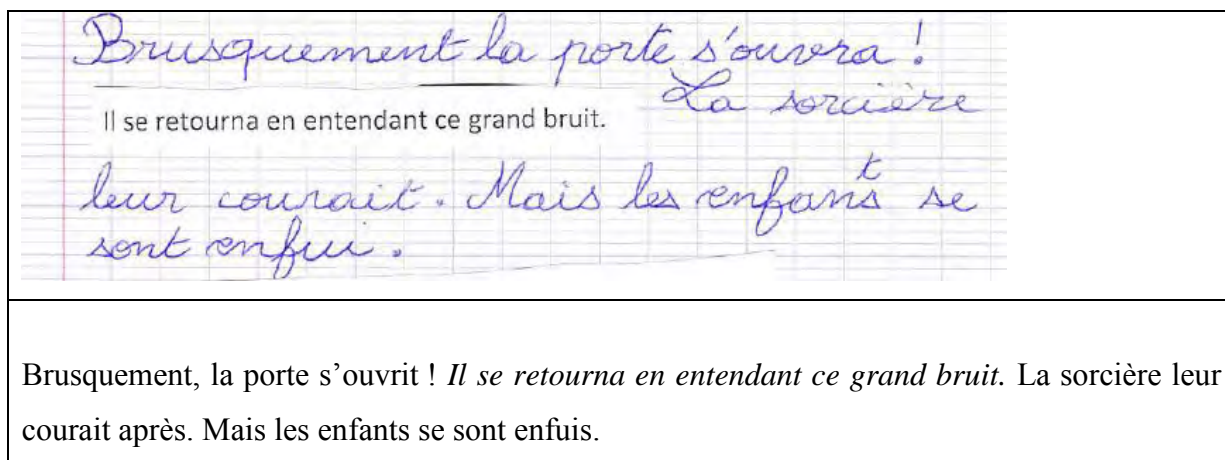 Brusquement la porte s'ouvra !
Il se retourna en entendant ce grand bruit.
La sorcière
leur courait. Mais les enfants se
sont enfui.
Brusquement, la porte s'ouvrit ! Il se retourna en entendant ce grand bruit. La sorcière leur
courait après. Mais les enfants se sont enfuis.